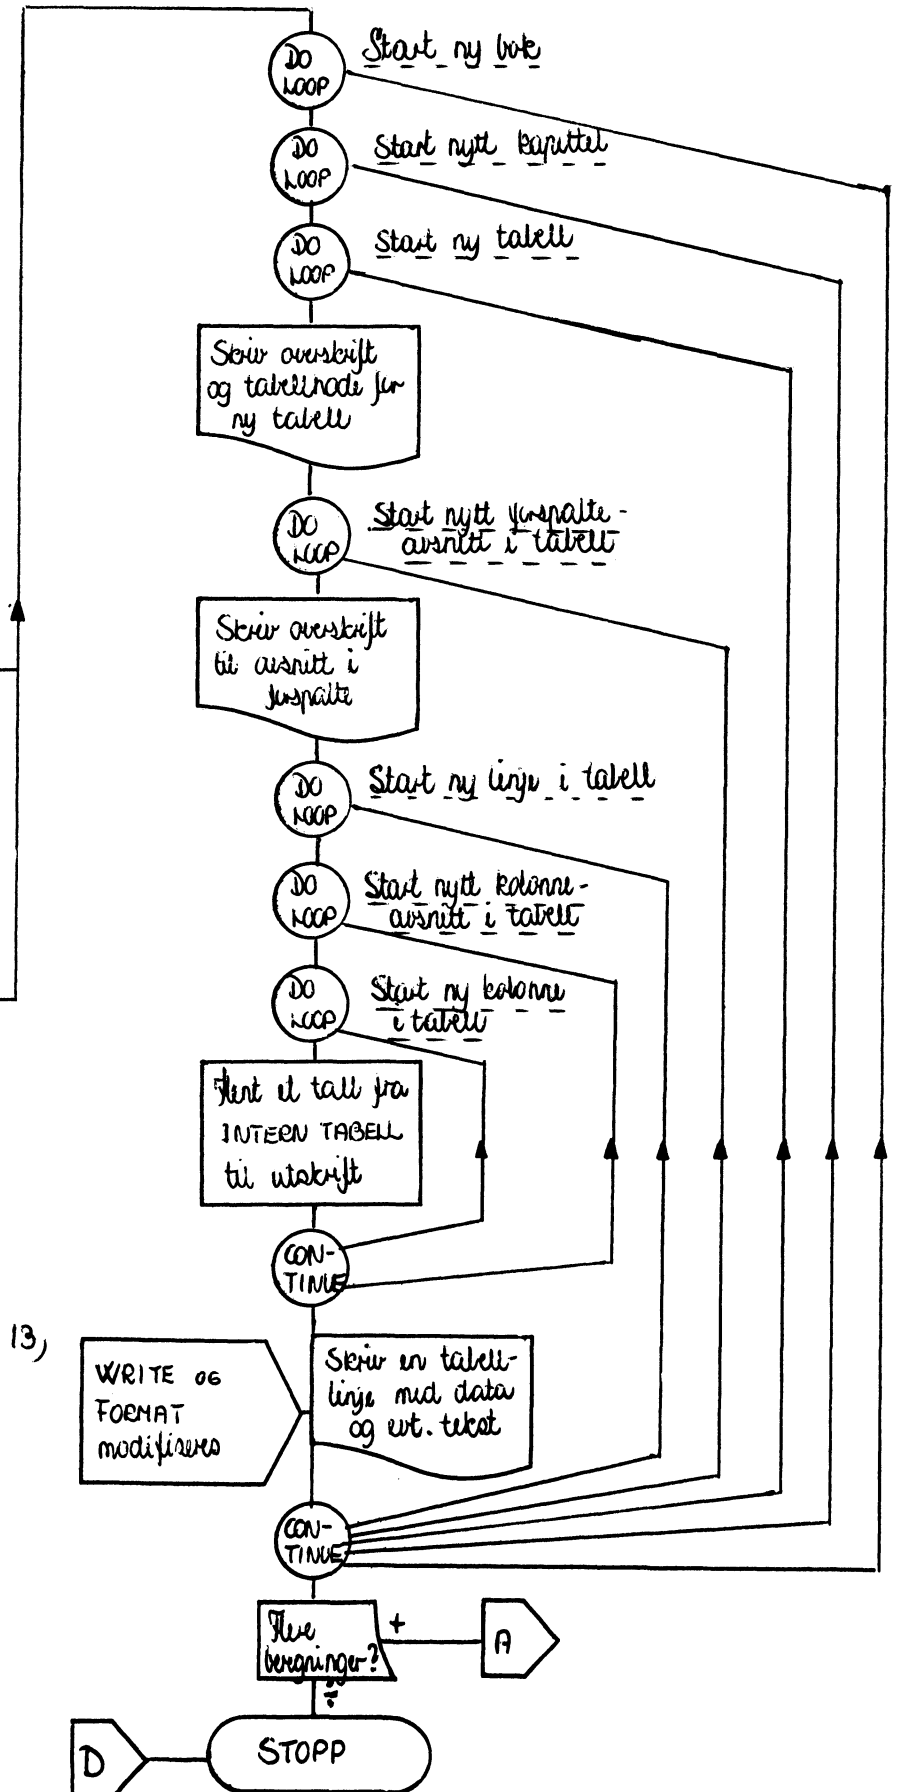 DO
LOOP
Start ny bok
DO
LOOP
Start nytt kapittel
DO
LOOP
Start ny tabell
Skriv overskift
og tabellhode for
ny tabell
DO
LOOP
Start nytt forspalte-
avsnitt i tabell
Skriv overskrift
til avsnitt i
forspalte
DO
LOOP
Start ny linje i tabell
DO
LOOP
Start nytt kolonne-
avsnitt i tabell
DO
LOOP
Start ny kolonne
i tabell
Hent et tall fra
INTERN TABELL
til utskrift
CON-
TINUE
13)
WRITE OG
FORMAT
modifiseres
Skriv en tabell-
linje med data
og evt. tekst
CON-
TINUE
Flere
beregninger?
+
A
÷
D
STOPP